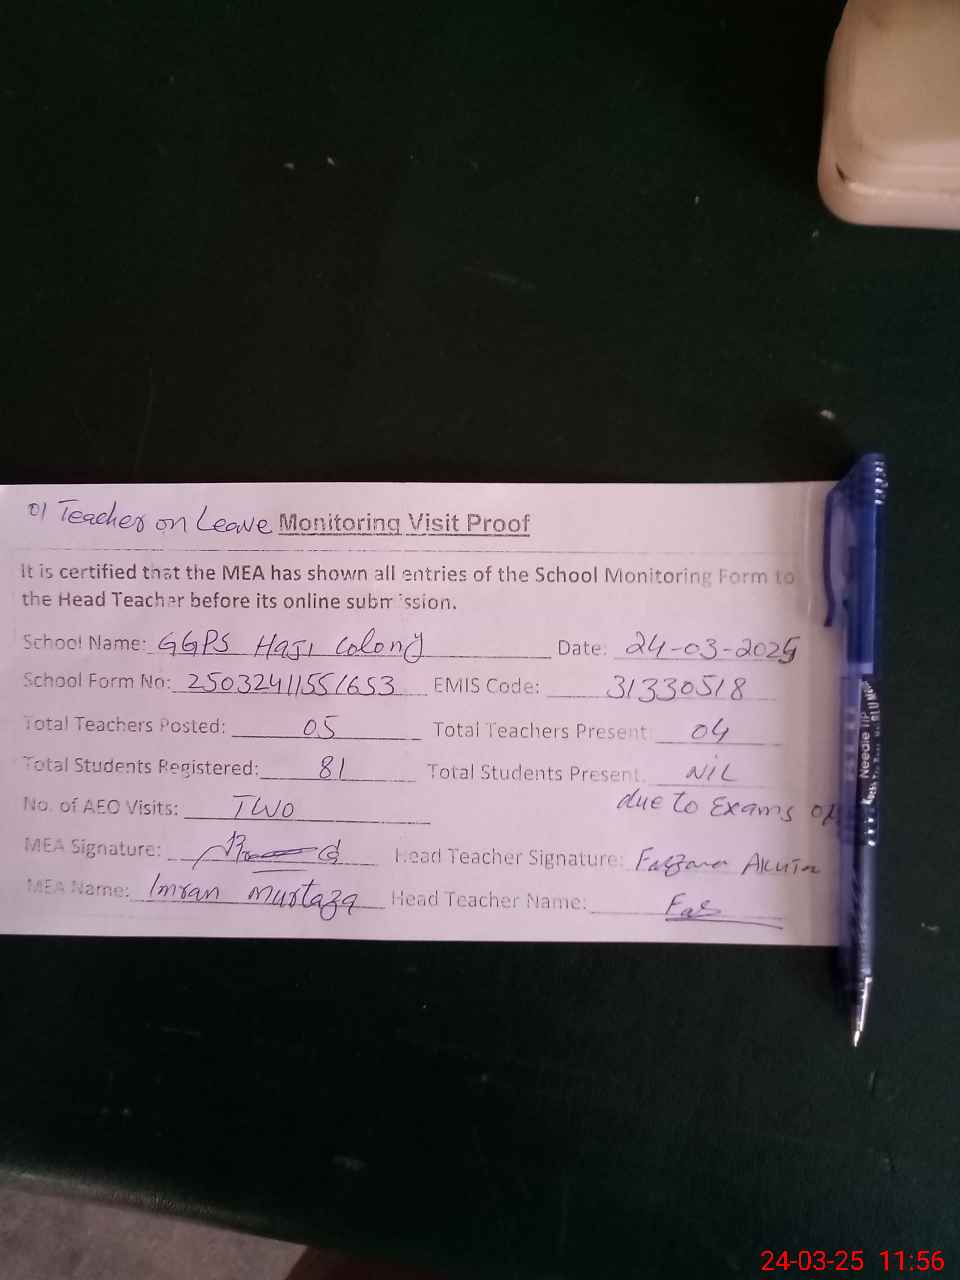 01 Teacher on Leave Monitoring Visit Proof
It is certified that the MEA has shown all entries of the School Monitoring Form to
the Head Teacher before its online submission.
School Name: GGPS Haji Colony Date: 24-03-2025
School Form No: 25032411551653 EMIS Code: 31330518
Total Teachers Posted: 05 Total Teachers Present: 04
Total Students Registered: 81 Total Students Present. NIL
No. of AEO Visits: TWO due to Exams of
MEA Signature: Head Teacher Signature: Akhtar
MEA Name: Imran Murtaza Head Teacher Name:
Needle Tip
24-03-25 11:56